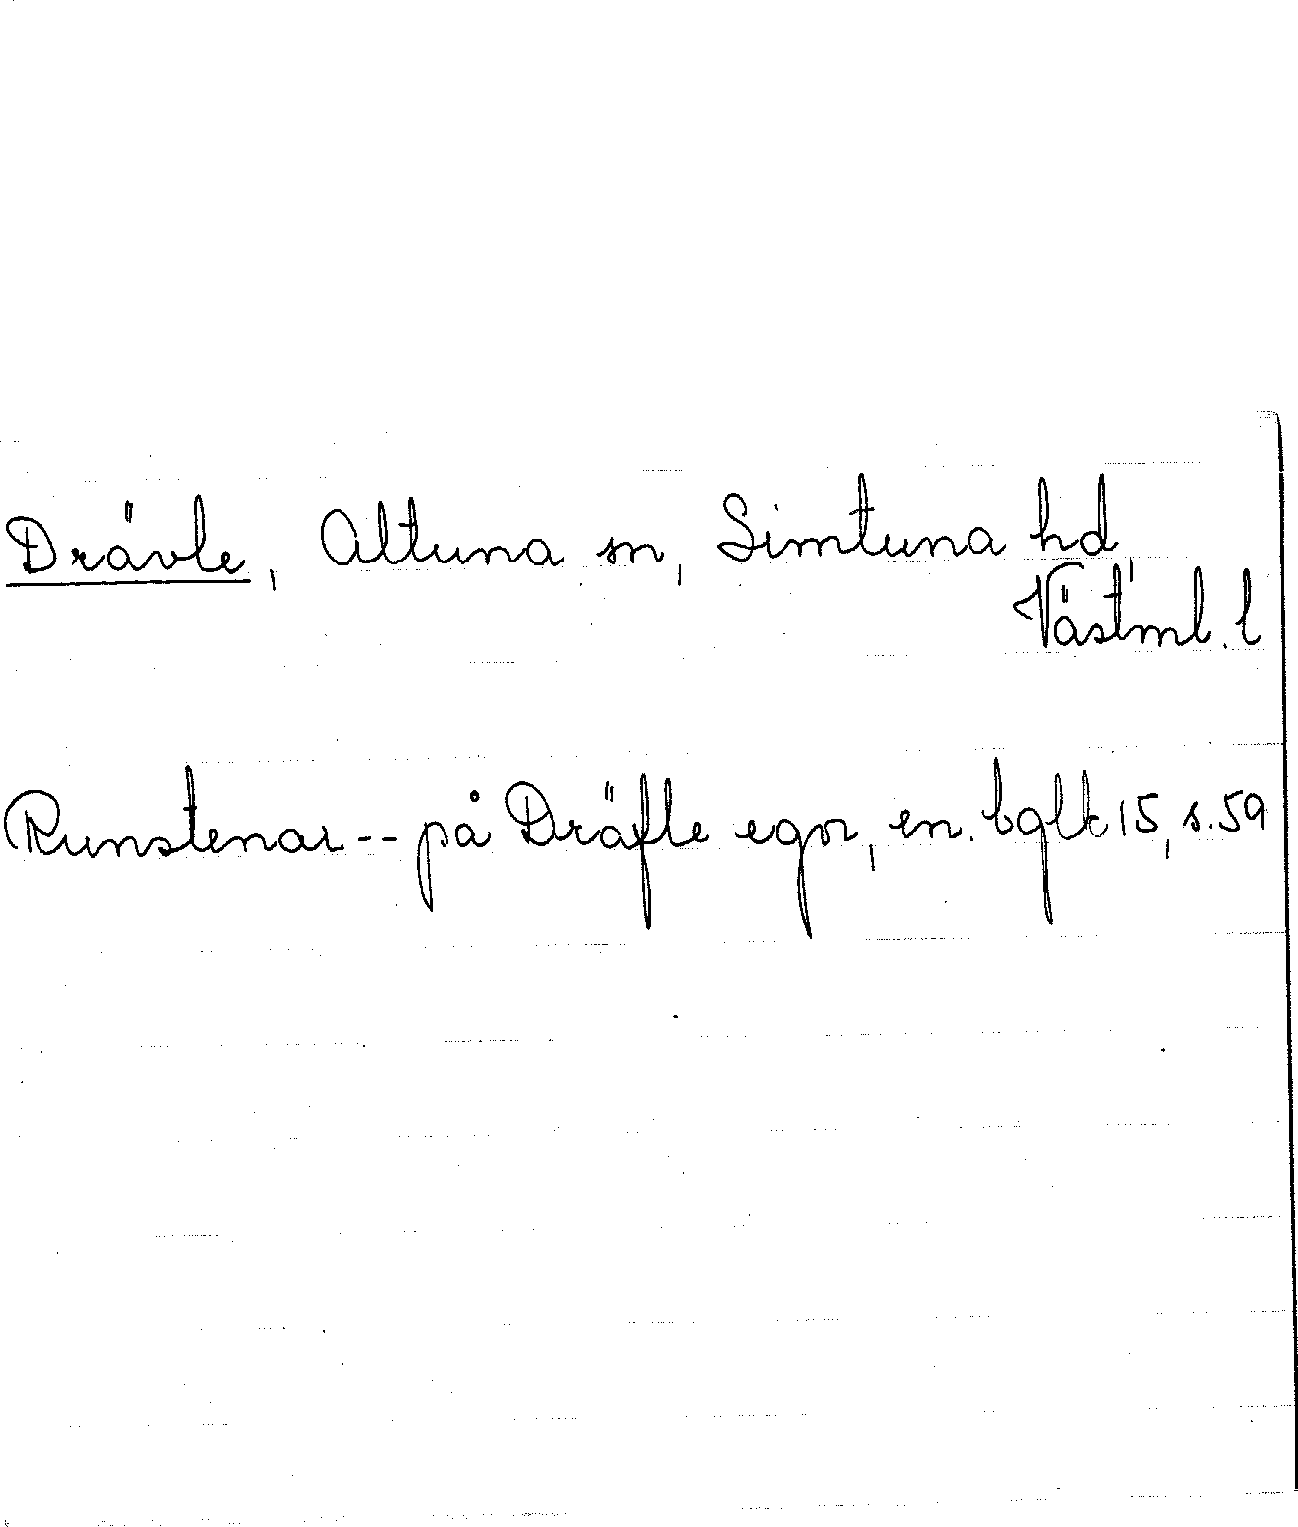 Drävle, Altuna sn, Simtuna hd,
Västml. l
Runstenar -- på Dräfle egor, en. bglk 15, s. 59